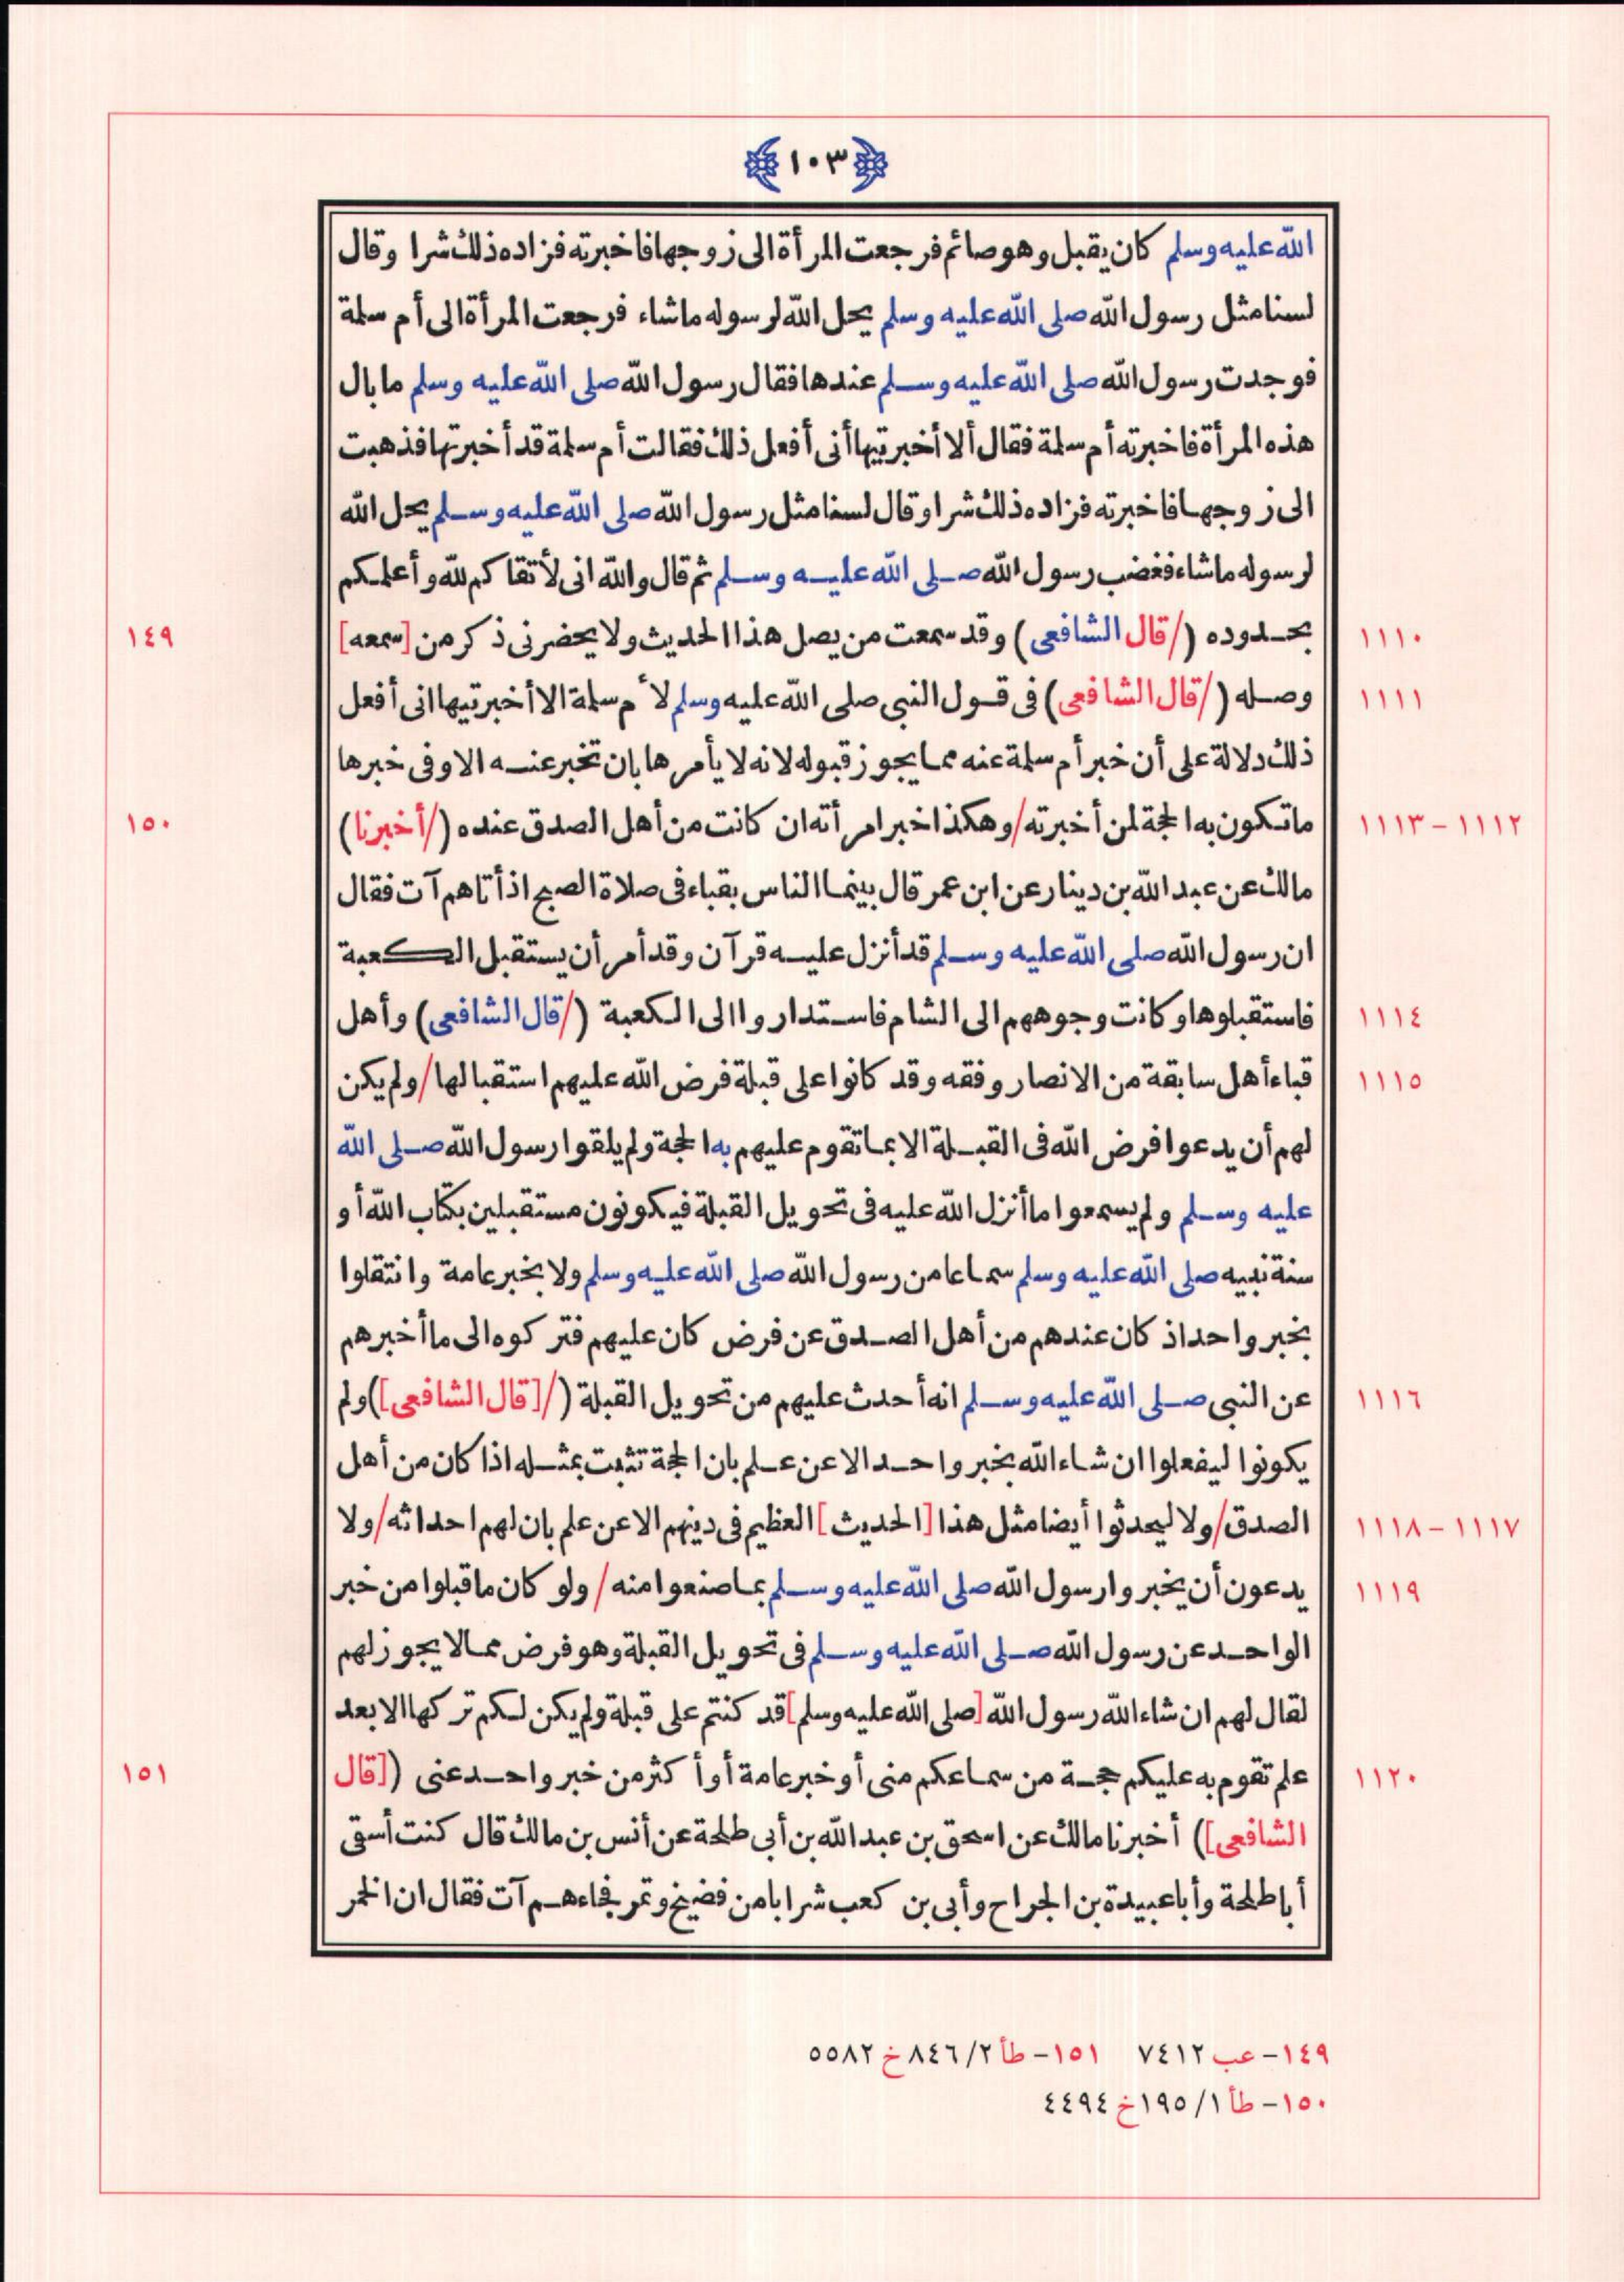 ١٠٣
الله عليه وسلم كان يقبل وهو صائم فرجعت المرأة الى زوجها فاخبرته فزاده ذلك شرا وقال
لسنا مثل رسول الله صلى الله عليه وسلم يحل الله لرسوله ماشاء فرجعت المرأة الى أم سلمة
فوجدت رسول الله صلى الله عليه وسلم عندها فقال رسول الله صلى الله عليه وسلم ما بال
هذه المرأة فاخبرته أم سلمة فقال ألا أخبرتيها أنى أفعل ذلك فقالت أم سلمة قد أخبرتها فذهبت
الى زوجها فاخبرته فزاده ذلك شرا وقال لسنا مثل رسول الله صلى الله عليه وسلم يحل الله
لرسوله ماشاء فغضب رسول الله صلى الله عليه وسلم ثم قال والله انى لأتقاكم لله وأعلمكم
١١١٠ بحدوده (/قال الشافعى) وقد سمعت من يصل هذا الحديث ولا يحضرنى ذكر من [سمعه] ١٤٩
١١١١ وصله (/قال الشافعى) فى قول النبي صلى الله عليه وسلم لأم سلمة الا أخبرتيها انى أفعل
ذلك دلالة على أن خبر أم سلمة عنه مما يجوز قبوله لانه لا يأمرها بان تخبر عنه الا وفى خبرها
١١١٢ – ١١١٣ ماتكون به الحجة لمن أخبرته/وهكذا خبر امرأته ان كانت من أهل الصدق عنده (/أخبرنا) ١٥٠
مالك عن عبد الله بن دينار عن ابن عمر قال بينما الناس بقباء فى صلاة الصبح اذ أتاهم آت فقال
ان رسول الله صلى الله عليه وسلم قد أنزل عليه قرآن وقد أمر أن يستقبل الكعبة
١١١٤ فاستقبلوها وكانت وجوههم الى الشام فاستداروا الى الكعبة (/قال الشافعى) وأهل
١١١٥ قباء أهل سابقة من الانصار وفقه وقد كانوا على قبلة فرض الله عليهم استقبالها/ولم يكن
لهم أن يدعوا فرض الله فى القبلة الا بما تقوم عليهم به الحجة ولم يلقوا رسول الله صلى الله
عليه وسلم ولم يسمعوا ما أنزل الله عليه فى تحويل القبلة فيكونون مستقبلين بكتاب الله أو
سنة نبيه صلى الله عليه وسلم سماعا من رسول الله صلى الله عليه وسلم ولا بخبر عامة وانتقلوا
بخبر واحد اذ كان عندهم من أهل الصدق عن فرض كان عليهم فتركوه الى ما أخبرهم
١١١٦ عن النبي صلى الله عليه وسلم انه أحدث عليهم من تحويل القبلة (/[قال الشافعى]) ولم
يكونوا ليفعلوا ان شاء الله بخبر واحد الا عن علم بان الحجة تثبت بمثله اذا كان من أهل
١١١٧ – ١١١٨ الصدق/ولا ليحدثوا أيضا مثل هذا [الحديث] العظيم فى دينهم الا عن علم بان لهم احداثه/ولا
١١١٩ يدعون أن يخبروا رسول الله صلى الله عليه وسلم بما صنعوا منه/ ولو كان ما قبلوا من خبر
الواحد عن رسول الله صلى الله عليه وسلم فى تحويل القبلة وهو فرض مما لا يجوز لهم
لقال لهم ان شاء الله رسول الله [صلى الله عليه وسلم] قد كنتم على قبلة ولم يكن لكم تركها الا بعد
١١٢٠ علم تقوم به عليكم حجة من سماعكم منى أو خبر عامة أو أكثر من خبر واحد عنى ([قال ١٥١
الشافعى]) أخبرنا مالك عن اسحق بن عبد الله بن أبى طلحة عن أنس بن مالك قال كنت أسقى
أبا طلحة وأبا عبيدة بن الجراح وأبى بن كعب شرابا من فضيخ وتمر فجاءهم آت فقال ان الخمر
١٤٩– عب ٧٤١٢ ١٥١– طأ ٢/ ٨٤٦ خ ٥٥٨٢
١٥٠– طأ ١/ ١٩٥ خ ٤٤٩٤